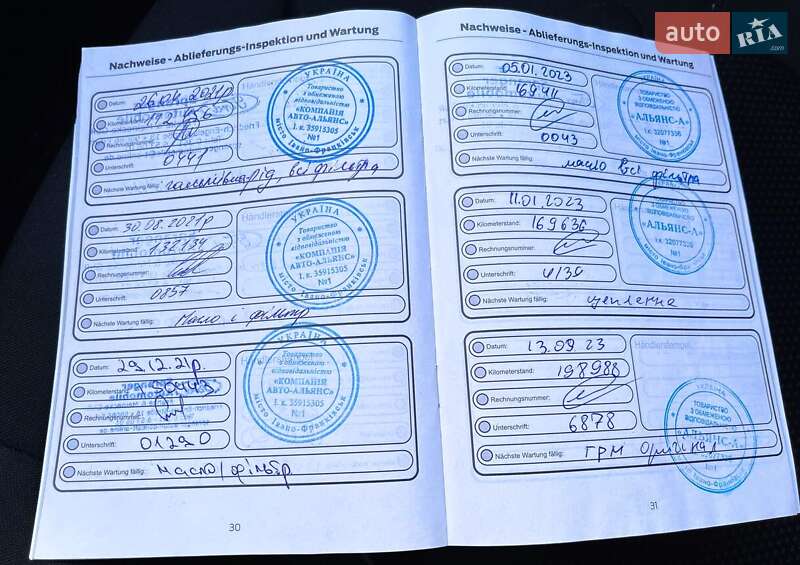 auto RIA .com
Nachweise - Ablieferungs-Inspektion und Wartung
Datum:
Kilometerstand:
Rechnungsnummer:
Unterschrift: 0441
Nächste Wartung fällig:
УКРАЇНА
Товариство
з обмеженою
відповідальністю
«КОМПАНІЯ
АВТО-АЛЬЯНС»
І. к. 35915305
№1
місто Івано-Франківськ
Datum: 30.08.2021р
Kilometerstand: 132.184
Rechnungsnummer:
Unterschrift: 0857
Nächste Wartung fällig: Масло і фільтр
УКРАЇНА
Товариство
з обмеженою
відповідальністю
«КОМПАНІЯ
АВТО-АЛЬЯНС»
І. к. 35915305
№1
місто Івано-Франківськ
Datum: 29.12.21р.
Kilometerstand:
Rechnungsnummer:
Unterschrift: 01290
Nächste Wartung fällig: масло/фільтр
УКРАЇНА
Товариство
з обмеженою
відповідальністю
«КОМПАНІЯ
АВТО-АЛЬЯНС»
І. к. 35915305
№1
місто Івано-Франківськ
30
Nachweise - Ablieferungs-Inspektion und Wartung
Datum: 05.01.2023
Kilometerstand: 169411
Rechnungsnummer:
Unterschrift: 0043
Nächste Wartung fällig: масло всі фільтра
ТОВАРИСТВО
З ОБМЕЖЕНОЮ
ВІДПОВІДАЛЬНІСТЮ
"АЛЬЯНС-А"
І.к. 32077336
№1
Datum: 11.01.2023
Kilometerstand: 169636
Rechnungsnummer:
Unterschrift:
Nächste Wartung fällig:
УКРАЇНА
ТОВАРИСТВО
З ОБМЕЖЕНОЮ
ВІДПОВІДАЛЬНІСТЮ
"АЛЬЯНС-А"
І.к. 32077336
№1
Datum: 13.09.23
Kilometerstand: 198988
Rechnungsnummer:
Unterschrift: 6878
Nächste Wartung fällig: ГРМ
Händlerstempel
УКРАЇНА
ТОВАРИСТВО
З ОБМЕЖЕНОЮ
ВІДПОВІДАЛЬНІСТЮ
"АЛЬЯНС-А"
№1
31